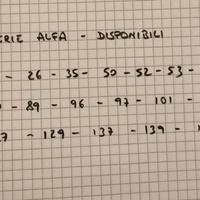 ERIE ALFA - DISPONIBILI
- 26 - 35 - 50 - 52 - 53 -
- 89 - 96 - 97 - 101 -
7 - 129 - 137 - 139 -